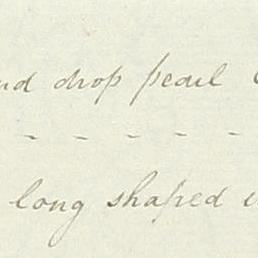 and drop pearl
- - - - -
long shaped